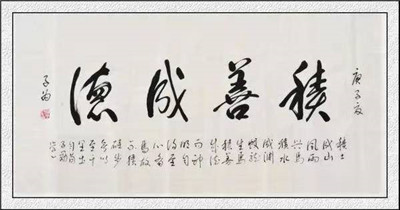 庚子夏
積善成德
積土
成山
風雨
興焉
積水
成淵
蛟龍
生焉
積善
成德
而神
明自
得
心備
焉故
不積
跬步
無以
至千
里出
自荀
子勸
學